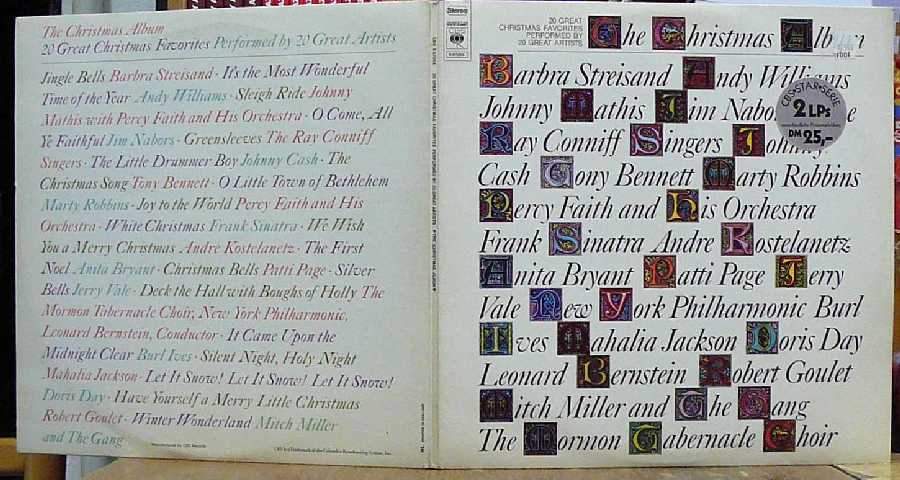 The Christmas Album
20 Great Christmas Favorites Performed by 20 Great Artists
Jingle Bells Barbra Streisand · It's the Most Wonderful
Time of the Year Andy Williams · Sleigh Ride Johnny
Mathis with Percy Faith and His Orchestra · O Come, All
Ye Faithful Jim Nabors · Greensleeves The Ray Conniff
Singers · The Little Drummer Boy Johnny Cash · The
Christmas Song Tony Bennett · O Little Town of Bethlehem
Marty Robbins · Joy to the World Percy Faith and His
Orchestra · White Christmas Frank Sinatra · We Wish
You a Merry Christmas Andre Kostelanetz · The First
Noel Anita Bryant · Christmas Bells Patti Page · Silver
Bells Jerry Vale · Deck the Hall with Boughs of Holly The
Mormon Tabernacle Choir, New York Philharmonic,
Leonard Bernstein, Conductor · It Came Upon the
Midnight Clear Burl Ives · Silent Night, Holy Night
Mahalia Jackson · Let It Snow! Let It Snow! Let It Snow!
Doris Day · Have Yourself a Merry Little Christmas
Robert Goulet · Winter Wonderland Mitch Miller
and The Gang
Stereo
CBS
20 GREAT
CHRISTMAS FAVORITES
PERFORMED BY
20 GREAT ARTISTS
The Christmas Album
Barbra Streisand Andy Williams
Johnny Mathis Jim Nabo
Ray Conniff Singers Johnny
Cash Tony Bennett Marty Robbins
Percy Faith and His Orchestra
Frank Sinatra Andre Kostelanetz
Anita Bryant Patti Page Jerry
Vale New York Philharmonic Burl
Ives Mahalia Jackson Doris Day
Leonard Bernstein Robert Goulet
Mitch Miller and The Gang
The Mormon Tabernacle Choir
CBS-STAR-SERIE
2 LPs
DM 25,-